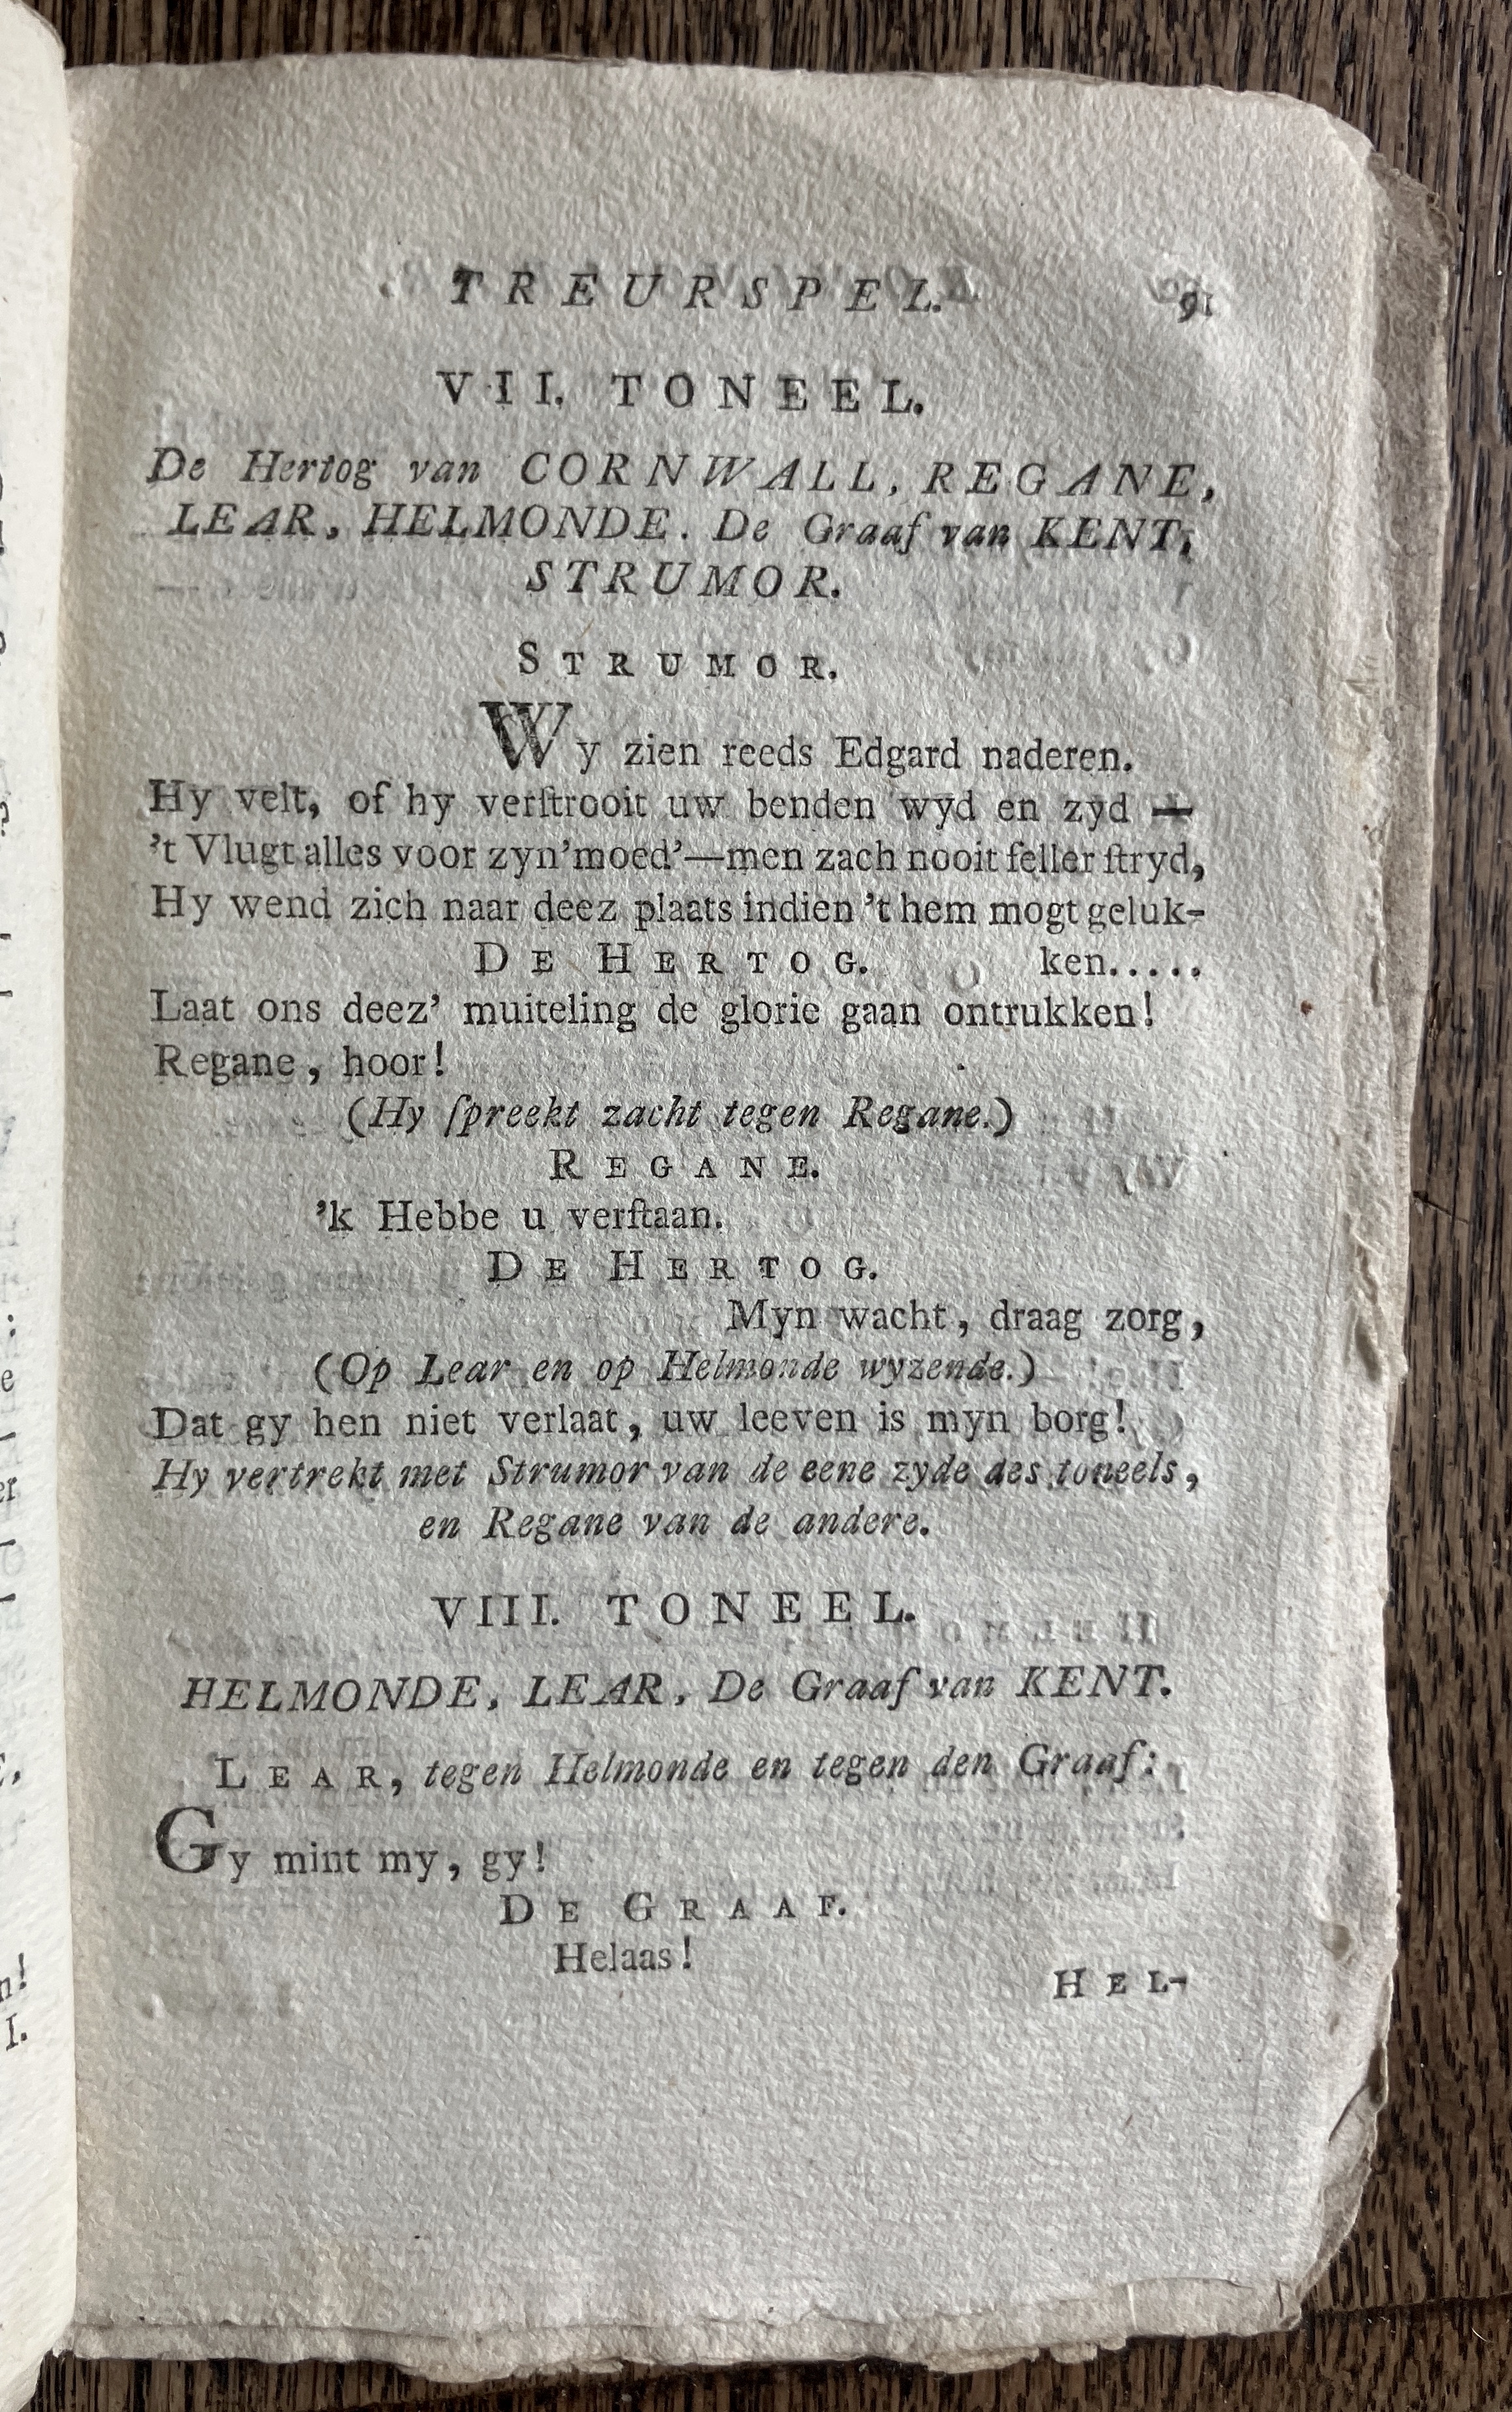 TREURSPEL. 91
VII. TONEEL.
De Hertog van CORNWALL, REGANE,
LEAR, HELMONDE. De Graaf van KENT,
STRUMOR.
STRUMOR.
Wy zien reeds Edgard naderen.
Hy velt, of hy verſtrooit uw benden wyd en zyd —
't Vlugt alles voor zyn'moed'—men zach nooit feller ſtryd,
Hy wend zich naar deez plaats indien 't hem mogt geluk-
DE HERTOG. ken.....
Laat ons deez' muiteling de glorie gaan ontrukken!
Regane, hoor!
(Hy ſpreekt zacht tegen Regane.)
REGANE.
'k Hebbe u verſtaan.
DE HERTOG.
Myn wacht, draag zorg,
(Op Lear en op Helmonde wyzende.)
Dat gy hen niet verlaat, uw leeven is myn borg!
Hy vertrekt met Strumor van de eene zyde des toneels,
en Regane van de andere.
VIII. TONEEL.
HELMONDE, LEAR, De Graaf van KENT.
LEAR, tegen Helmonde en tegen den Graaf:
Gy mint my, gy!
DE GRAAF.
Helaas!
HEL-